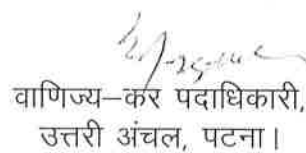 वाणिज्य–कर पदाधिकारी,
उत्तरी अंचल, पटना।